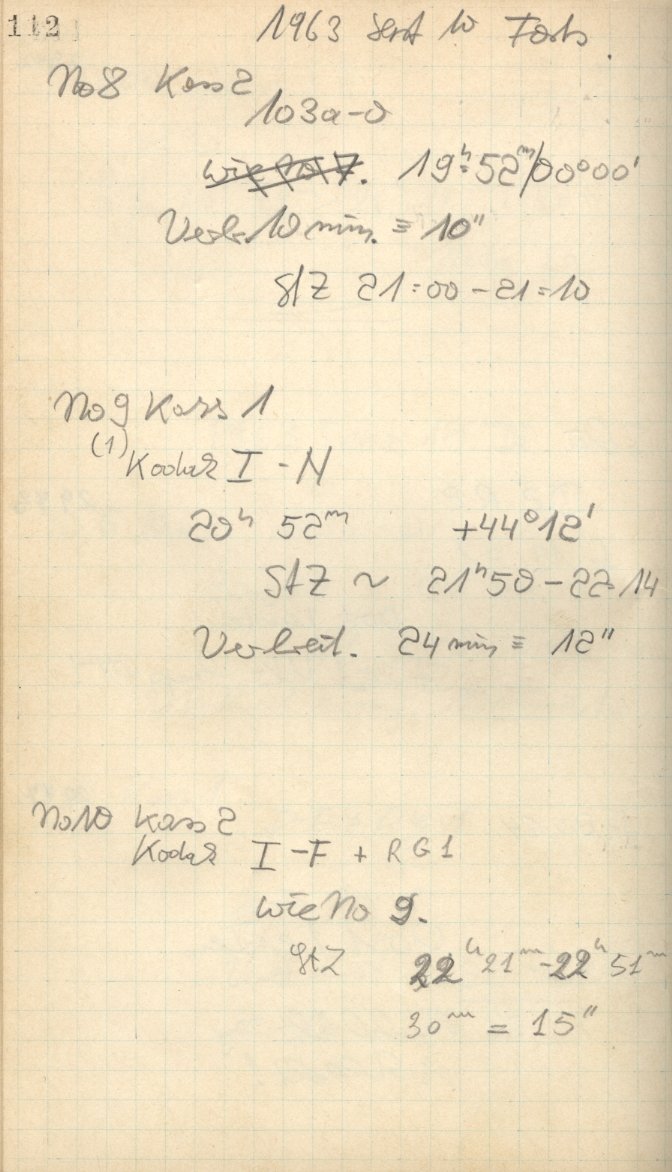 112
1963 Sept 10 Forts.
No 8 Kass 2
103a-O
wie No 7. 19ʰ:52ᵐ/00°00'
Verbr. 10 min. ≡ 10"
StZ 21:00 - 21:10
No 9 Kass 1
(1) Kodak I - N
20ʰ 52ᵐ +44°12'
StZ ~ 21ʰ50 - 22 14
Verbreit. 24 min ≡ 12"
No 10 Kass 2
Kodak I - F + RG1
wie No 9.
StZ 22ʰ21ᵐ - 22ʰ51ᵐ
30ᵐ = 15"